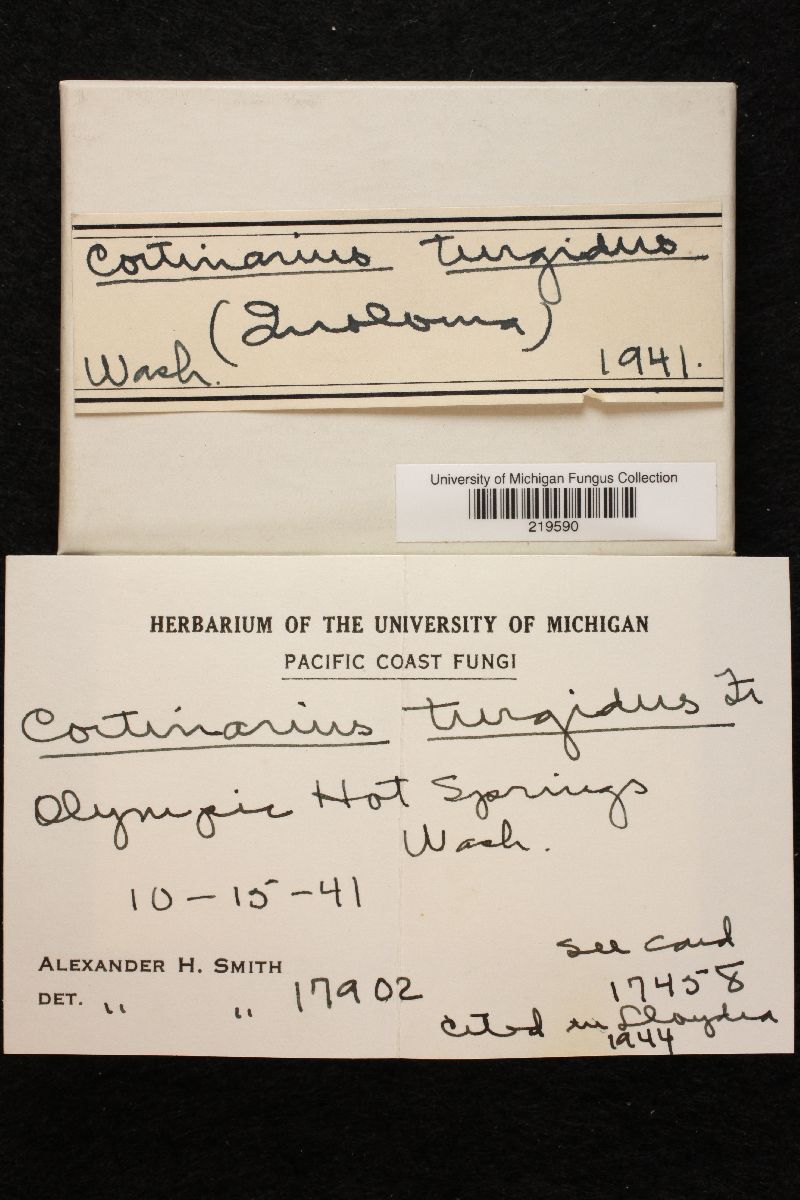 Cortinarius turgidus
(Inoloma)
Wash. 1941.
University of Michigan Fungus Collection
219590
HERBARIUM OF THE UNIVERSITY OF MICHIGAN
PACIFIC COAST FUNGI
Cortinarius turgidus Fr
Olympic Hot Springs
Wash.
10-15-41
see card
ALEXANDER H. SMITH
17458
DET. " " 17902
cited in Lloydia
1944